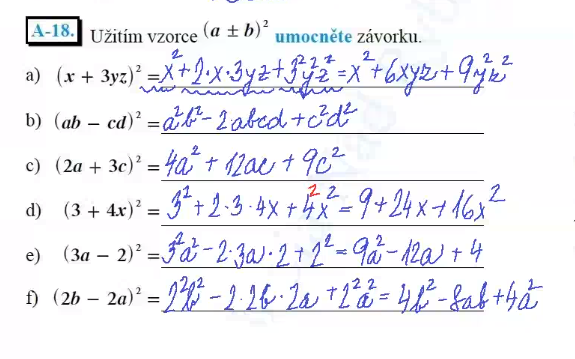 A-18. Užitím vzorce (a ± b)² umocněte závorku.
a) (x + 3yz)² = x² + 2·x·3yz + 3²y²z² = x² + 6xyz + 9y²z²
b) (ab − cd)² = a²b² − 2abcd + c²d²
c) (2a + 3c)² = 4a² + 12ac + 9c²
d) (3 + 4x)² = 3² + 2·3·4x + 4²x² = 9 + 24x + 16x²
e) (3a − 2)² = 3²a² − 2·3a·2 + 2² = 9a² − 12a + 4
f) (2b − 2a)² = 2²b² − 2·2b·2a + 2²a² = 4b² − 8ab + 4a²